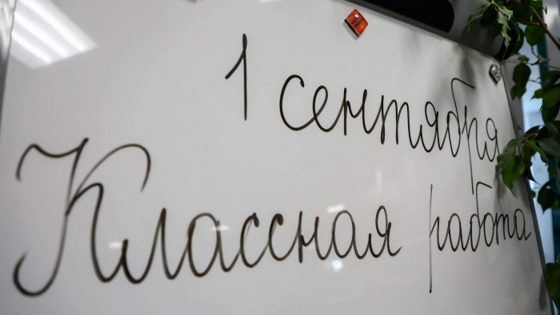 1 сентября
Классная работа